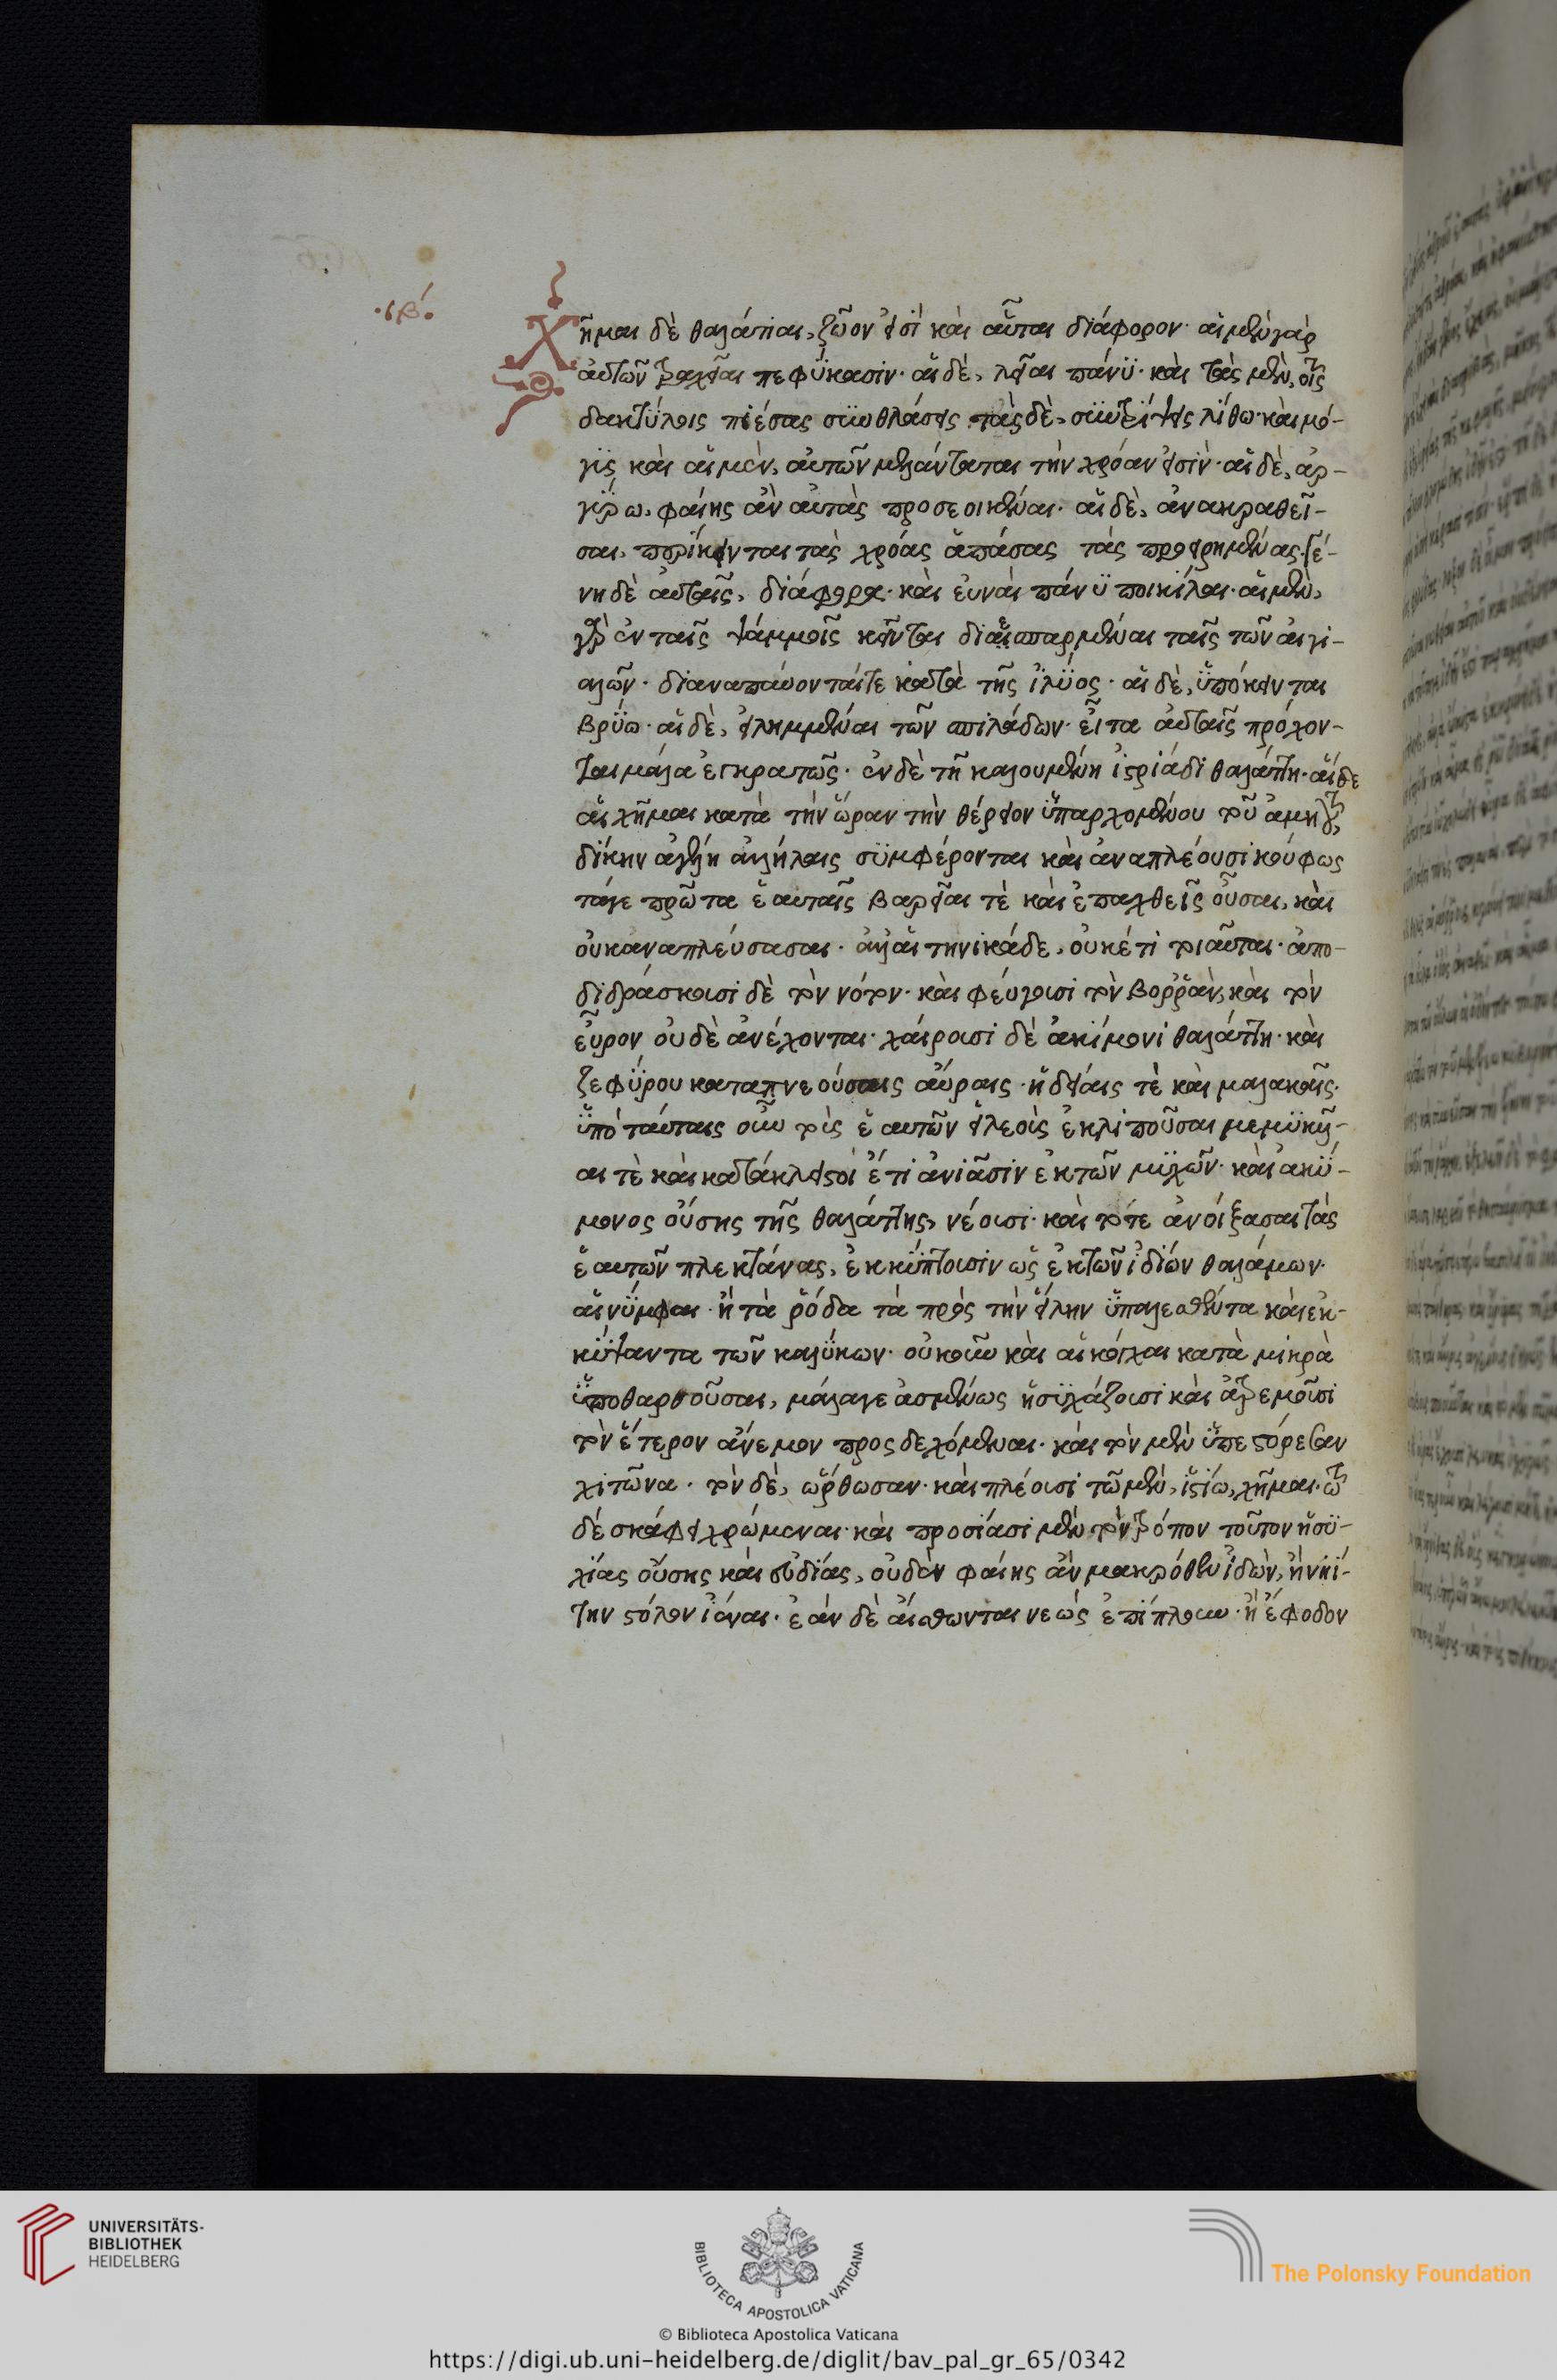 ·ιβ´·
Χῆμαι δὲ θαλάττιαι, ζῶον εἰσὶ καὶ αὗται διάφορον· αἱ μὲν γὰρ
αὐτῶν τραχεῖαι πεφύκασιν· αἱ δὲ, λεῖαι πάνϋ· καὶ τὰς μὲν, τοῖς
δακτΰλοις πιέσας συνθλάσεις τὰς δὲ, συντρίψεις λίθω· καὶ μό-
γϊς καὶ αἱ μὲν, αὐτῶν μελάνταται τὴν χρόαν εἰσὶν· αἱ δὲ, ἀρ-
γύρω, φαίης ἂν αὐτὰς προσεοικέναι· αἱ δὲ, ἀνακραθεῖ-
σαι, περίκεινται τὰς χρόας ἁπάσας τὰς προειρημένας· γέ-
νη δὲ αὐταῖς, διάφορα· καὶ εὐναὶ πάνϋ ποικίλαι· αἱ μὲν,
γὰρ ἐν ταῖς ψάμμοις κεῖνται διεσπαρμέναι ταῖς τῶν αἰγι-
αλῶν· διαναπαύονταί τε κατὰ τῆς ἰλΰος· αἱ δὲ, ὑπόκεινται
βρΰω· αἱ δὲ, εἰλημμέναι τῶν σπιλάδων· εἶτα αὐταῖς πρόχον-
ται μάλα ἐγκρατῶς· ἐν δὲ τῆ καλουμένη ἰστριάδι θαλάττη· αἵδε
αἱ χῆμαι κατὰ τὴν ὥραν τὴν θέρειον ὑπαρχομένου τοῦ ἀμητοῦ
δίκην ἀγέλη ἀλλήλαις συμφέρονται καὶ ἀναπλέουσι κούφως
τάγε πρῶτα ἑαυταῖς βαρεῖαι τὲ καὶ ἐπαχθεῖς οὖσαι, καὶ
οὐκ αναπλεύσασαι· ἀλλ αἱ τηνικάδε, οὐκέτι τοιαῦται· ἀπο-
διδράσκουσι δὲ τὸν νότον· καὶ φεύγουσι τὸν βορρᾶν, καὶ τὸν
εὖρον οὐδὲ ἀνέχονται· χαίρουσι δὲ ἀκύμονι θαλάττη· καὶ
ζεφΰρου καταπνεούσαις αὔραις· ἡδείαις τὲ καὶ μαλακαῖς·
ὑπὸ ταύταις οὖν τοὺς ἑαυτῶν εἰλεοὺς ἐκλιποῦσαι μεμυκυῖ-
αι τὲ καὶ κατάκλειστοι ἔτι ἀνιᾶσιν ἐκ τῶν μϋχῶν· καὶ ἀκΰ-
μονος οὔσης τῆς θαλάττης, νέουσι· καὶ τότε ἀνοίξασαι τὰς
ἑαυτῶν πλεκτάνας, ἐκκΰπτουσιν ὡς ἐκ τῶν ἰδίων θαλάμων·
αἱ νΰμφαι· ἢ τὰ ῥόδα τὰ πρὸς τὴν εἵλην ὑπαλεανθέντα καὶ ἐκ-
κΰψαντα τῶν καλΰκων· οὐκοῦν καὶ αἱ κόγχαι κατὰ μικρὰ
ὑποθαρροῦσαι, μάλαγε ἀσμένως ἡσυχάζουσι καὶ ἀτρεμοῦσι
τὸν ἕτερον ἄνεμον προσδεχόμεναι· καὶ τὸν μὲν ὑπεστόρεσαν
χιτῶνα· τὸν δὲ, ὤρθωσαν· καὶ πλέουσι τῶ μὲν, ἱστίω, χῆμαι· τῶ
δέ σκάφει χρώμεναι· καὶ προσίασι μὲν τὸν τρόπον τοῦτον ἡσϋ-
χίας οὔσης καὶ εὐδίας, οὐδὲν φαίης ἂν μακρόθεν ἰδὼν, ἢ νηί-
την στόλον ἰέναι· ἐὰν δὲ αἴσθωνται νεὼς ἐπίπλουν· ἢ ἔφοδον
UNIVERSITÄTS-
BIBLIOTHEK
HEIDELBERG
BIBLIOTECA APOSTOLICA VATICANA
The Polonsky Foundation
© Biblioteca Apostolica Vaticana
https://digi.ub.uni-heidelberg.de/diglit/bav_pal_gr_65/0342